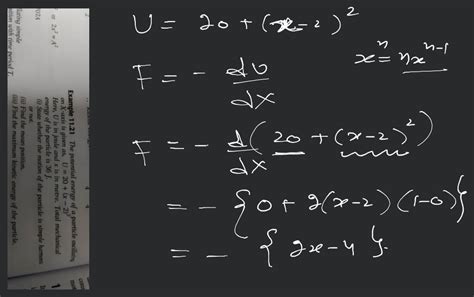 U = 20 + (x-2)²
xⁿ = nxⁿ⁻¹
F = - dU/dx
F = - d/dx (20 + (x-2)²)
= - { 0 + 2(x-2) (1-0) }
= - { 2x - 4 }.
Example 11.21 The potential energy of a particle oscillating
on X-axis is given as, U = 20 + (x - 2)²
Here, U is in joule and x is in metre. Total mechanical
energy of the particle is 36 J.
(i) State whether the motion of the particle is simple harmonic
or not.
(ii) Find the mean position.
(iii) Find the maximum kinetic energy of the particle.